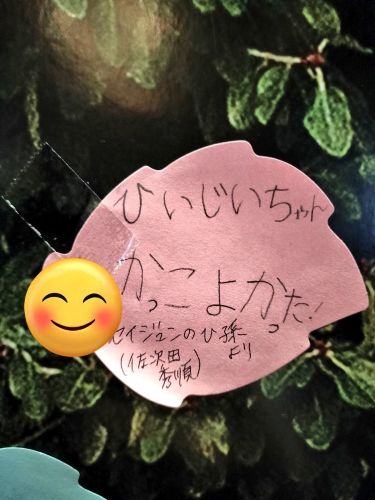 ひぃじいちゃん
かっこよかった!
セイジュンのひ孫
より
(佐次田
秀順)